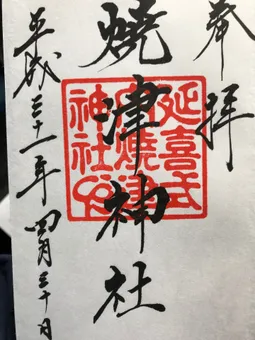 奉拝
燒津神社
平成三十一年四月三十日
延喜式
燒津
神社